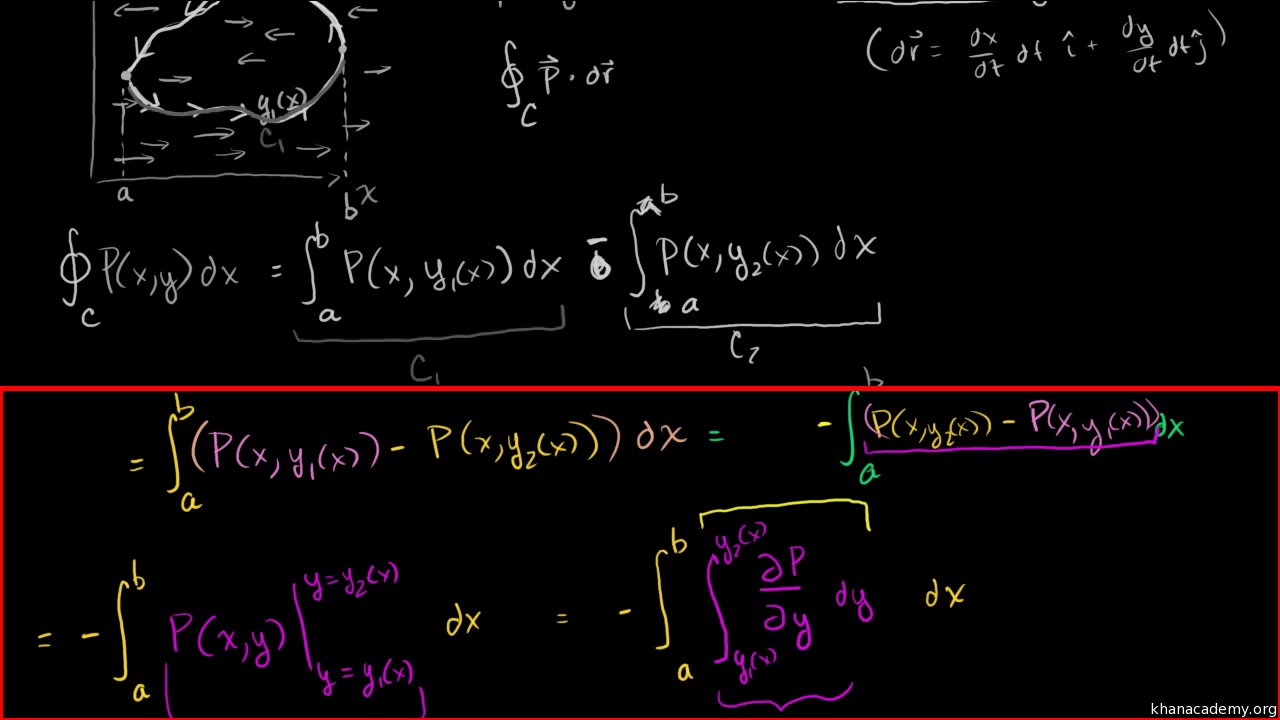 y₁(x)
C₁
a
b
x
∮_C P⃗ · dr⃗
(dr⃗ = dx/dt dt î + dy/dt dt ĵ)
∮_C P(x,y) dx = ∫_a^b P(x, y₁(x)) dx − ∫_a^b P(x, y₂(x)) dx
C₁
C₂
= ∫_a^b (P(x, y₁(x)) − P(x, y₂(x))) dx = − ∫_a^b (P(x, y₂(x)) − P(x, y₁(x))) dx
= − ∫_a^b P(x,y) |_{y = y₁(x)}^{y = y₂(x)} dx = − ∫_a^b ∫_{y₁(x)}^{y₂(x)} ∂P/∂y dy dx
khanacademy.org